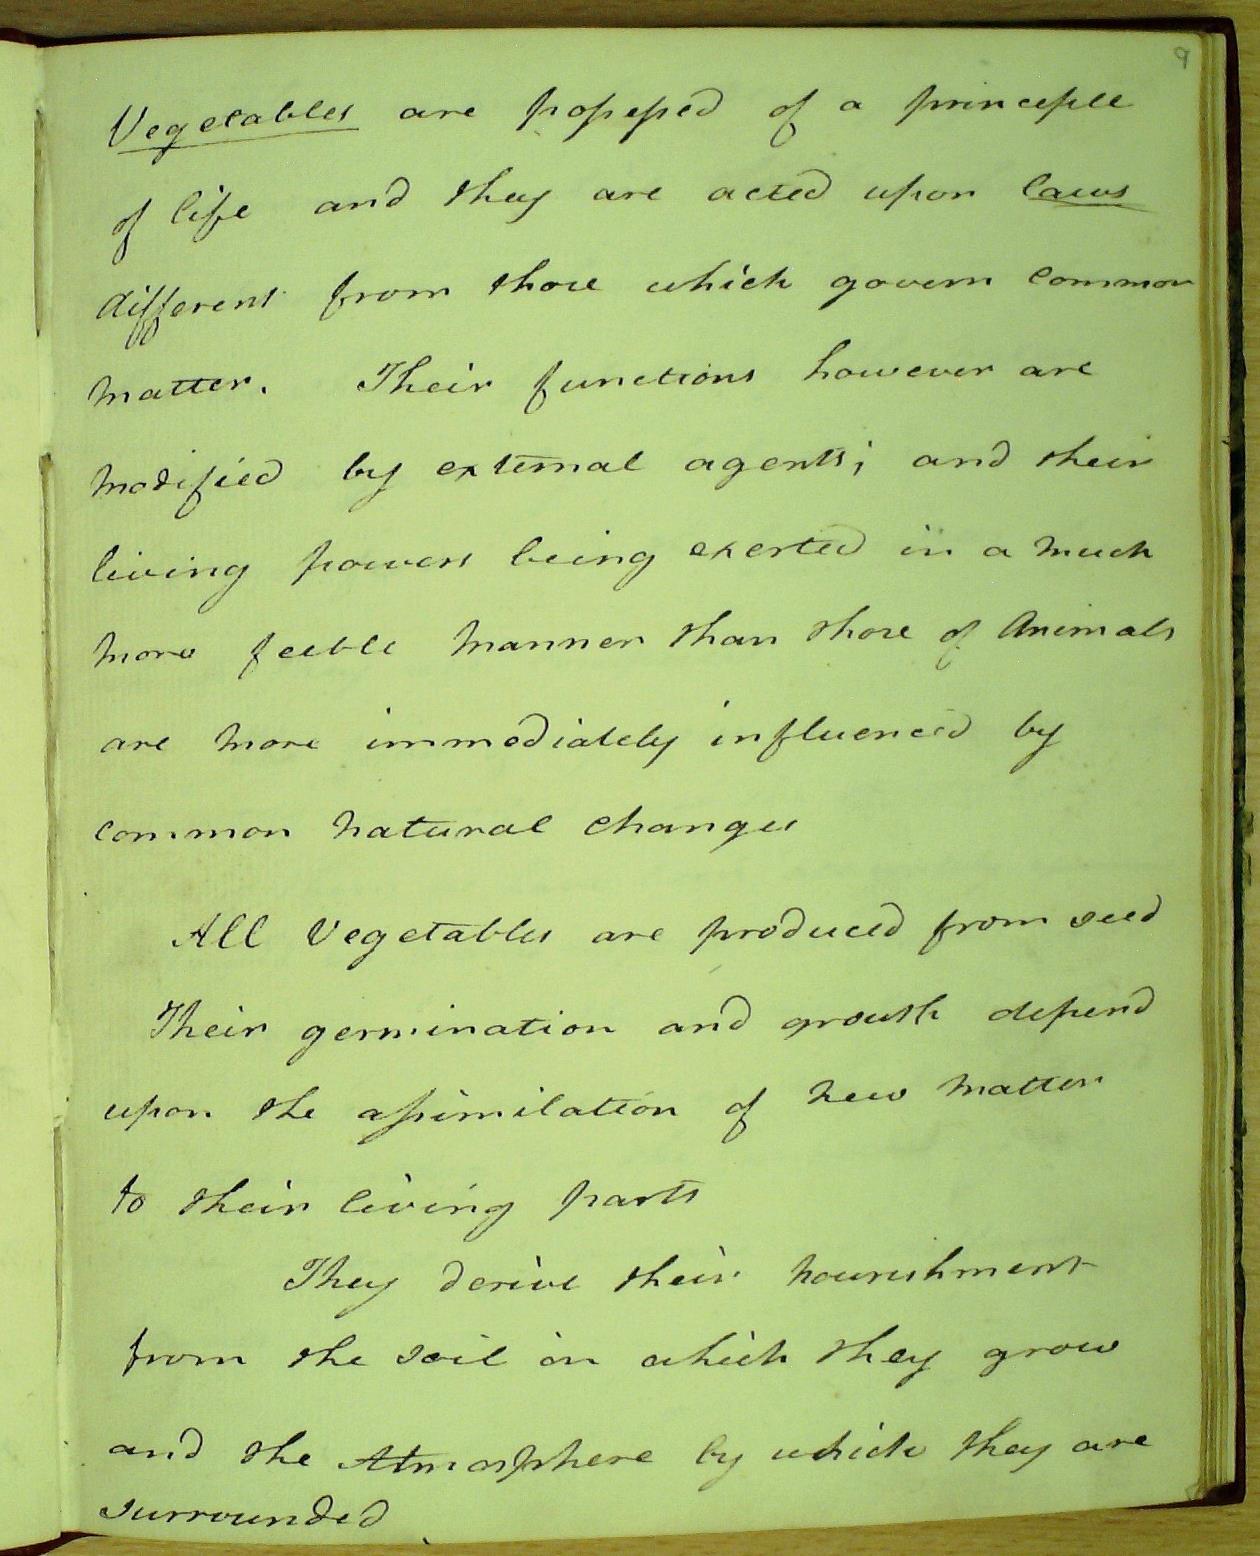 9
Vegetables are possessed of a principle
of life and they are acted upon laws
different from those which govern common
matter. Their functions however are
modified by external agents; and their
living powers being exerted in a much
more feeble manner than those of Animals
are more immediately influenced by
common natural changes
All Vegetables are produced from seed
Their germination and growth depend
upon the assimilation of new matter
to their living parts
They derive their nourishment
from the soil in which they grow
and the Atmosphere by which they are
surrounded